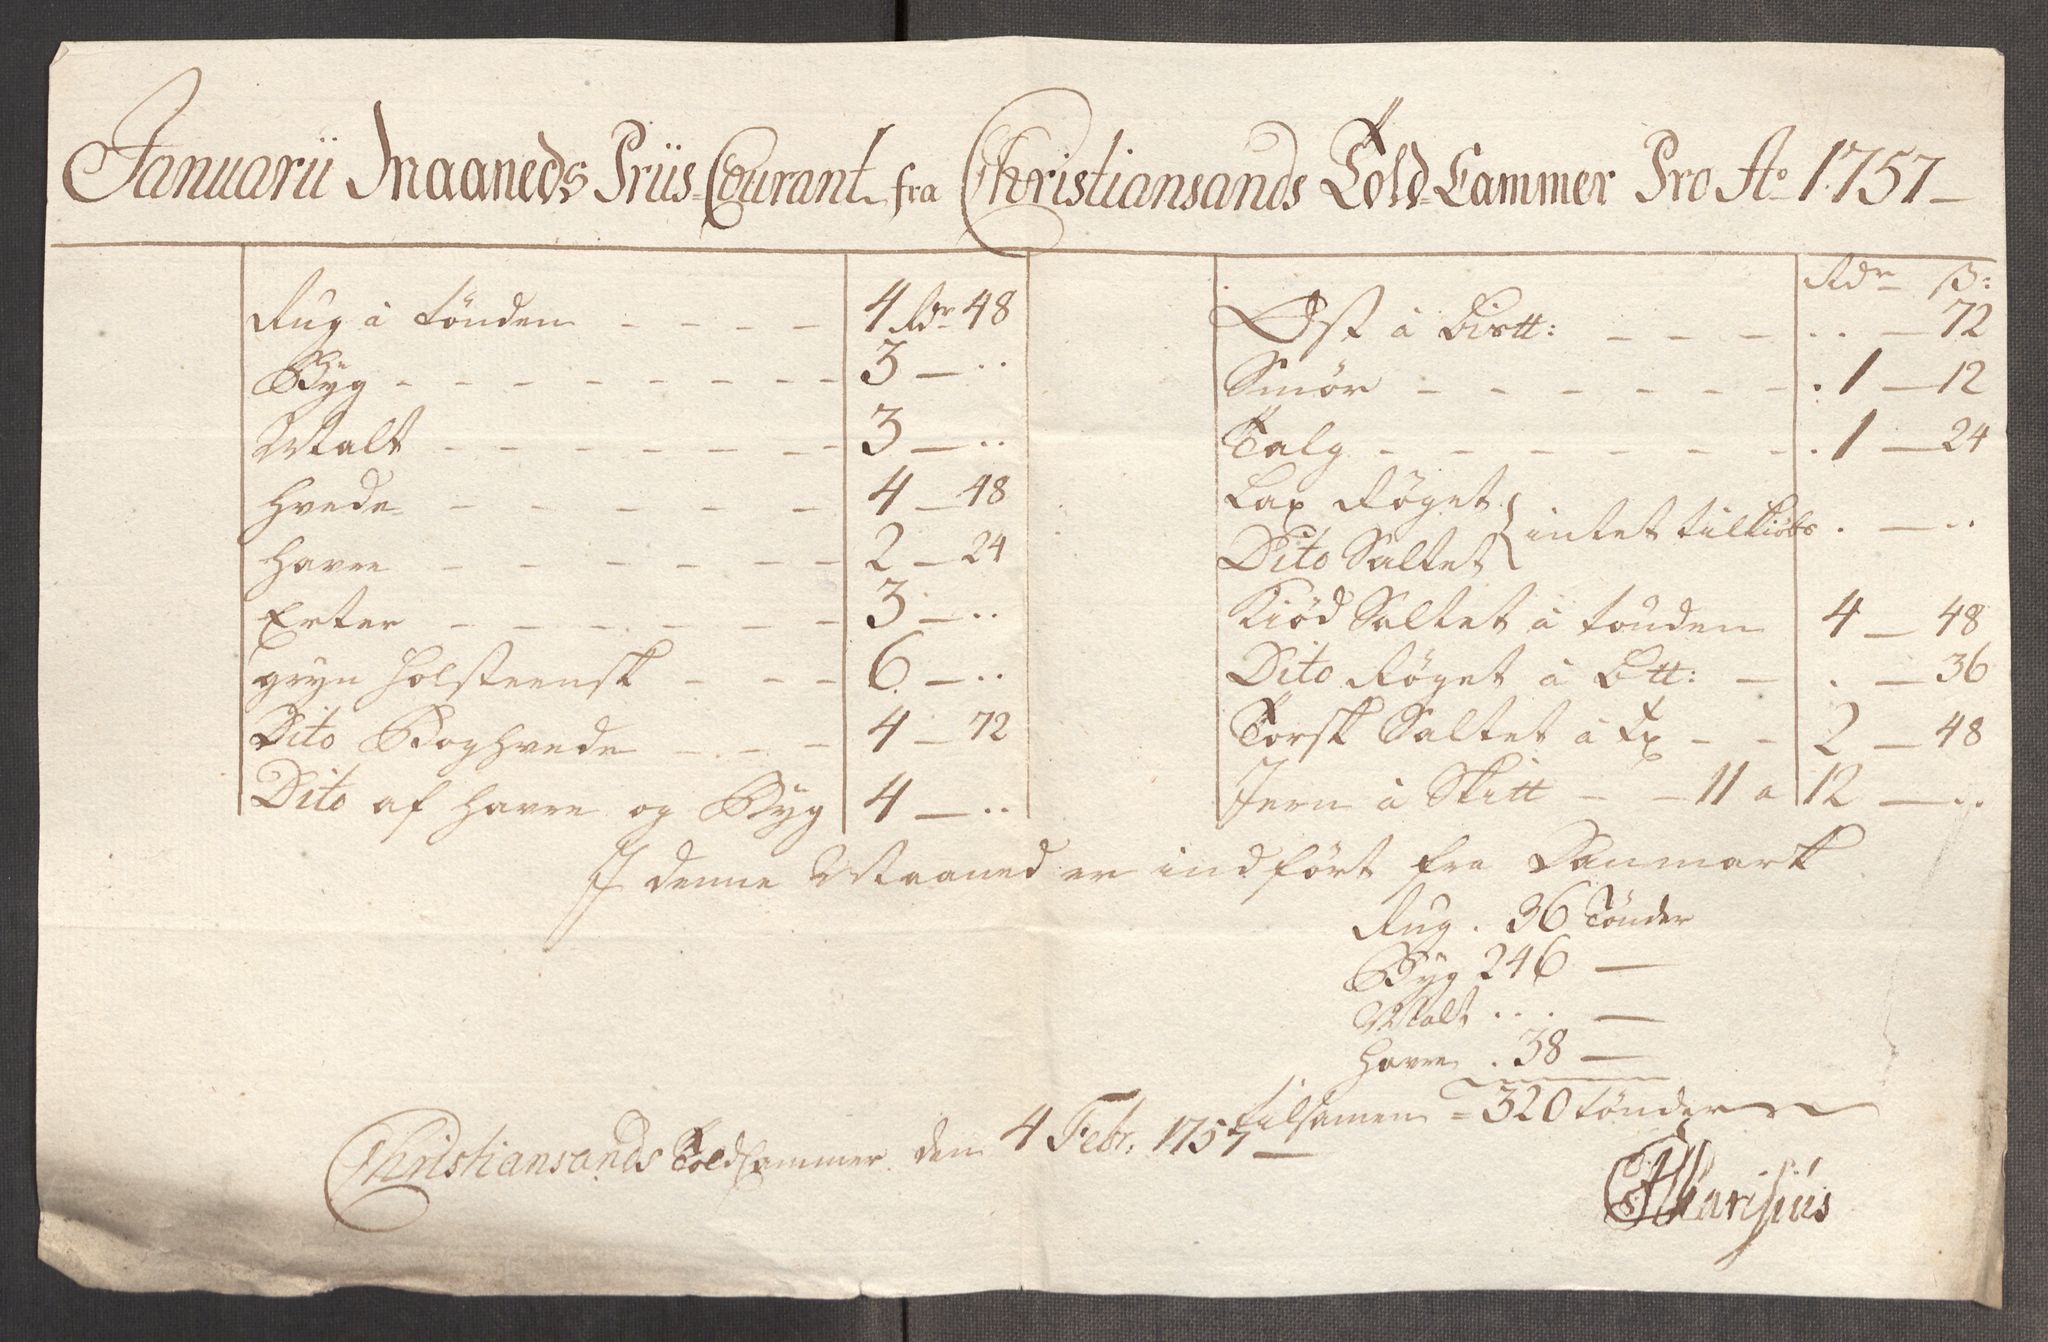 Januarii Maaneds Priis-Courant fra Christiansands Told-Cammer Pro Ao 1757
Rug à tönden 4 Rdr 48
Byg 3 — ..
Malt 3 — ..
Hvede 4 — 48
Havre 2 — 24
Erter 3 — ..
gryn Holsteensk 6 — ..
Dito Boghvede 4 — 72
Dito af Havre og Byg 4 — ..
Rdr ß:
Ost à .. — 72
Smör 1 — 12
Talg 1 — 24
Lax Röget
Dito Saltet } intet tilkiöbs . — ..
Kiöd Saltet à tönden 4 — 48
Dito Röget à . — 36
Torsk Saltet à 2 — 48
Jern à 11 a 12 — ..
J denne Maaned er indfört fra Danmark
Rug . 36 Tönder
Byg 246 —
Malt ... —
Havre . 38 —
tilsamen = 320 tönder
Christiansands Told Cammer den 4 Febr. 1757